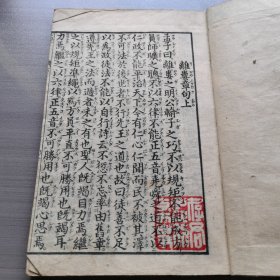 離婁章句上
孟子曰離婁之明公輸子之巧不以規矩不能成方
員師曠之聰不以六律不能正五音堯舜之道不以
仁政不能平治天下今有仁心仁聞而民不被其澤
不可法於後世者不行先王之道也故曰徒善不足
以爲政徒法不能以自行詩云不愆不忘率由舊章
遵先王之法而過者未之有也聖人既竭目力焉繼
之以規矩準繩以爲方員平直不可勝用也既竭耳
力焉繼之以六律正五音不可勝用也既竭心思焉